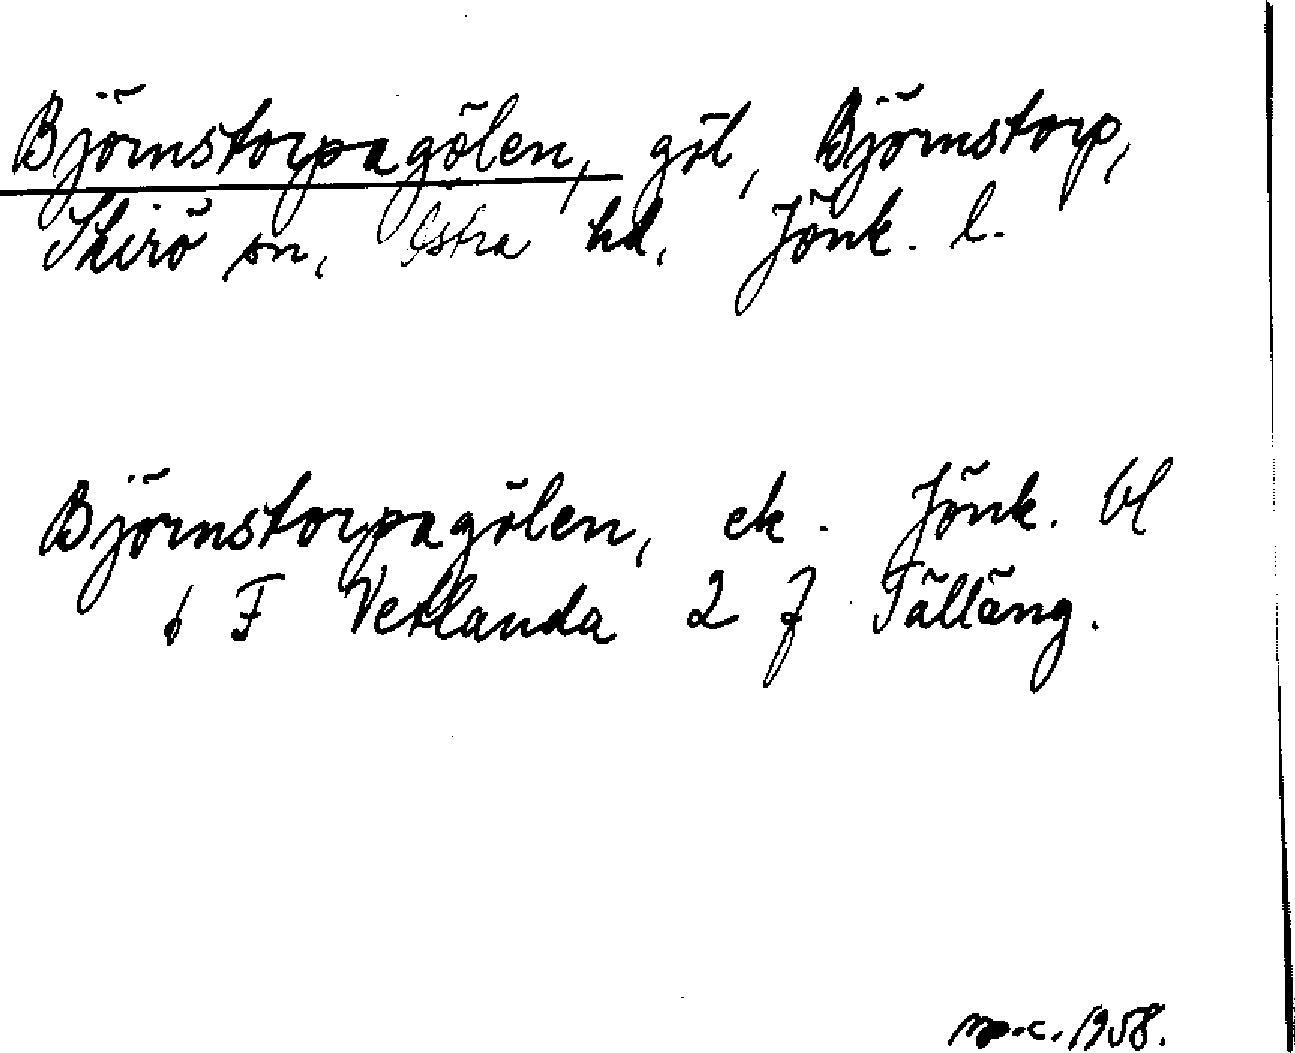 Björnstorpagölen, göl, Björnstorp,
Skirö sn, Östra hd, Jönk. l.
Björnstorpagölen, ek. Jönk. bl
6 F Vetlanda 2 f Fälläng.
1958.